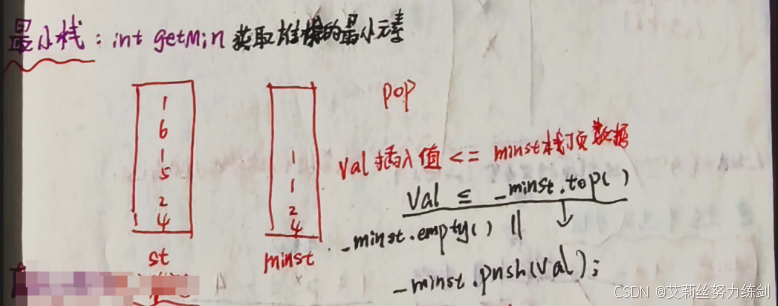 最小栈：int getMin 获取堆栈的最小元素
pop
1
6
1
5
2
4
st
1
1
2
4
minst
val 插入值 <= minst栈顶数据
val ≤ _minst.top()
_minst.empty() ||
_minst.push(val);
CSDN @艾莉丝努力练剑